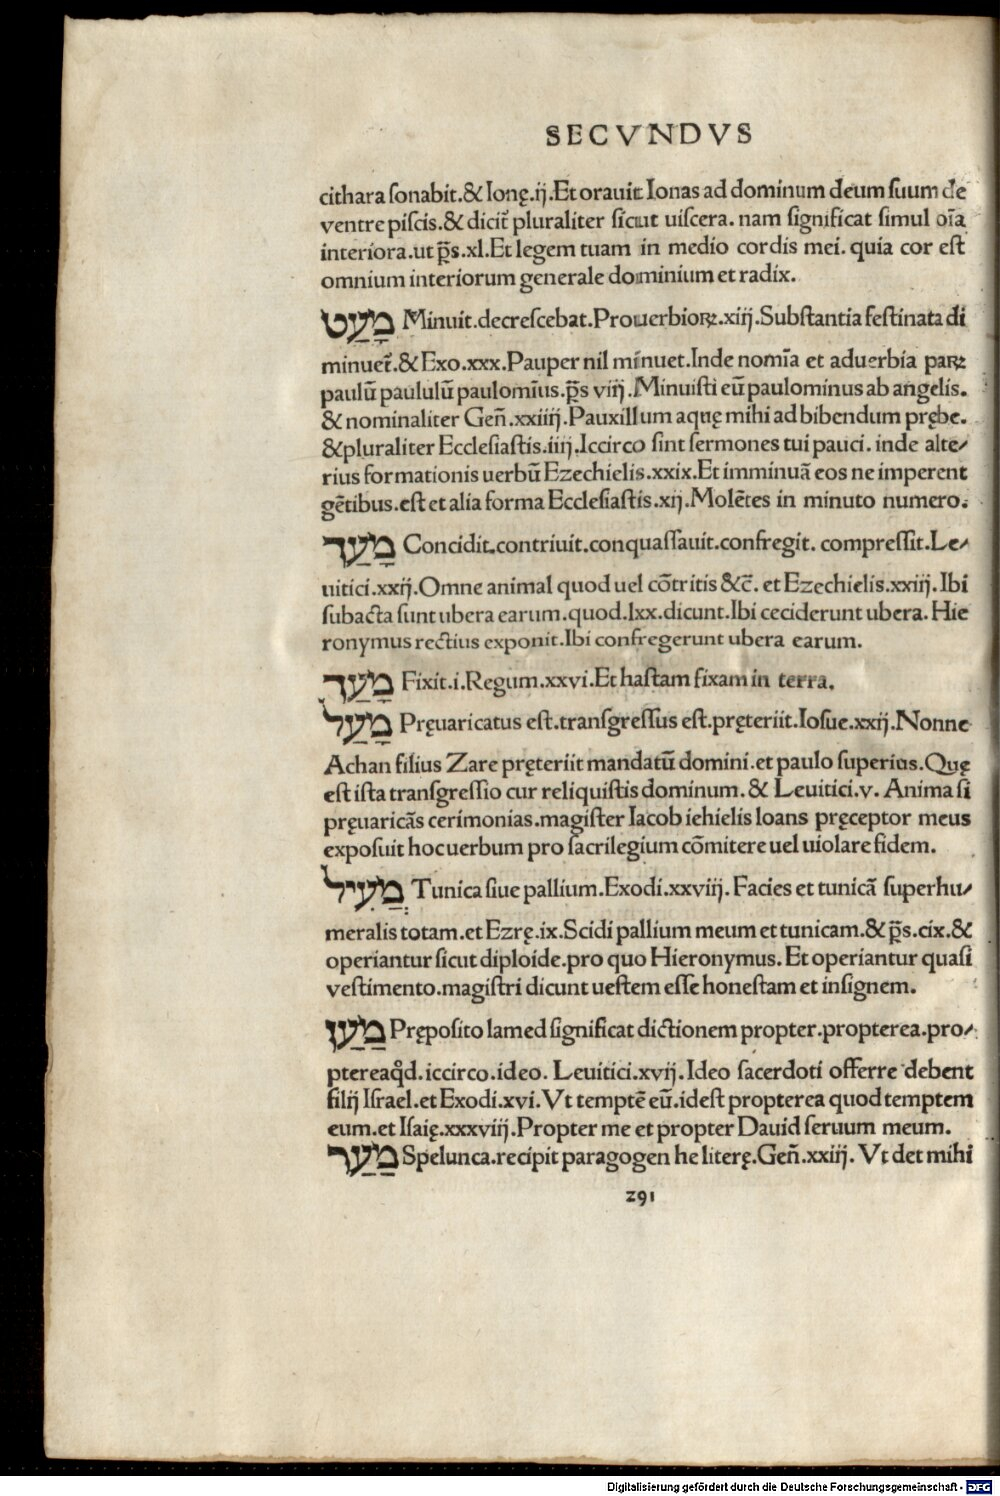 SECVNDVS
cithara sonabit.& Ionę.ij.Et orauit Ionas ad dominum deum suum de
ventre piscis.& dicit᷑ pluraliter sicut uiscera. nam significat simul oīa
interiora.ut p̄s.xl.Et legem tuam in medio cordis mei. quia cor est
omnium interiorum generale dominium et radix.
מָעַט Minuit.decrescebat.Prouerbioꝝ.xiij.Substantia festinata di
minuet᷑.& Exo.xxx.Pauper nil minuet.Inde nomīa et aduerbia paꝝ
paulū paululū paulomīus.p̄s viij.Minuisti eū paulominus ab angelis.
& nominaliter Geñ.xxiiij.Pauxillum aquę mihi ad bibendum prębe.
&pluraliter Ecclesiastis.iiij.Iccirco sint sermones tui pauci. inde alte⸗
rius formationis uerbū Ezechielis.xxix.Et imminuā eos ne imperent
gētibus.est et alia forma Ecclesiastis.xij.Molētes in minuto numero.
מָעַך Concidit.contriuit.conquassauit.confregit. compressit.Le⸗
uitici.xxij.Omne animal quod uel cōtritis &c̄. et Ezechielis.xxiij.Ibi
subacta sunt ubera earum.quod.lxx.dicunt.Ibi ceciderunt ubera. Hie
ronymus rectius exponit.Ibi confregerunt ubera earum.
מָעַך Fixit.i.Regum.xxvi.Et hastam fixam in terra.
מָעַל Pręuaricatus est.transgressus est.pręteriit.Iosue.xxij.Nonne
Achan filius Zare pręteriit mandatū domini.et paulo superius.Quę
est ista transgressio cur reliquistis dominum.& Leuitici.v. Anima si
pręuaricās cerimonias.magister Iacob iehielis loans pręceptor meus
exposuit hoc uerbum pro sacrilegium cōmitere uel uiolare fidem.
מְעִיל Tunica siue pallium.Exodi.xxviij. Facies et tunicā superhu⸗
meralis totam.et Ezrę.ix.Scidi pallium meum et tunicam.& p̄s.cix.&
operiantur sicut diploide.pro quo Hieronymus. Et operiantur quasi
vestimento.magistri dicunt uestem esse honestam et insignem.
מַעַן Pręposito lamed significat dictionem propter.propterea.pro⸗
ptereaq̊d.iccirco.ideo. Leuitici.xvij.Ideo sacerdoti offerre debent
filij Israel.et Exodi.xvi.Vt temptē eū.idest propterea quod temptem
eum.et Isaię.xxxviij.Propter me et propter Dauid seruum meum.
מַעַר Spelunca.recipit paragogen he literę.Geñ.xxiij. Vt det mihi
291
Digitalisierung gefördert durch die Deutsche Forschungsgemeinschaft - DFG